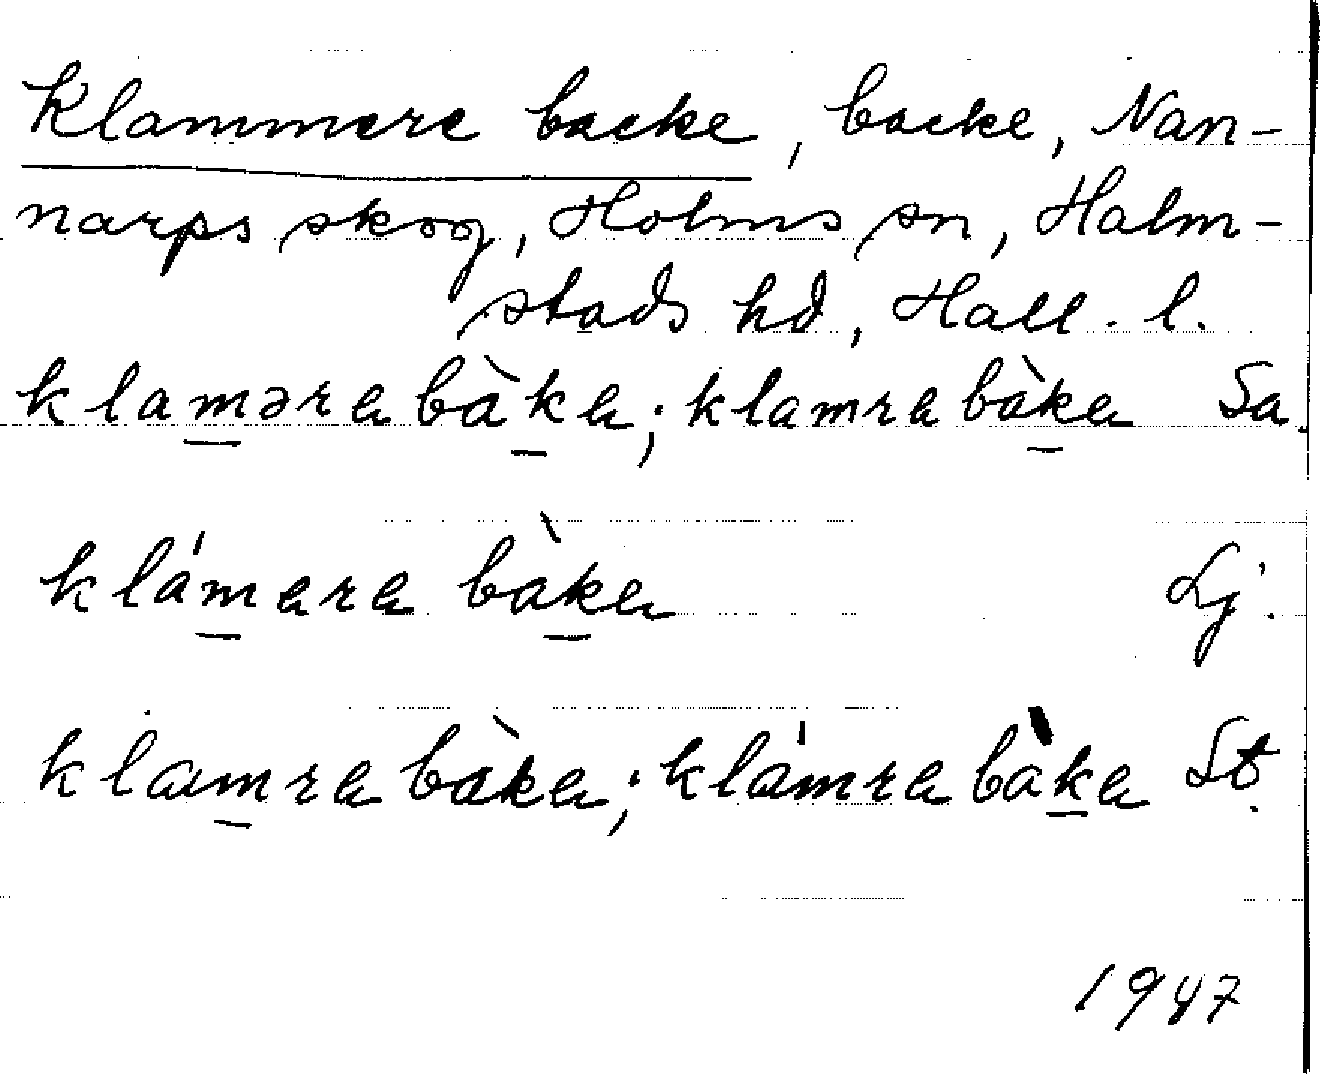 Klammere backe, backe, Nan-
narps skog, Holms sn, Halm-
stads hd, Hall. l.
klam̲ərabàk̲a; klamrabàk̲a Sa.
klám̲ara bàk̲a Lj.
klam̲rabàka; klámrabàk̲a St.
1947